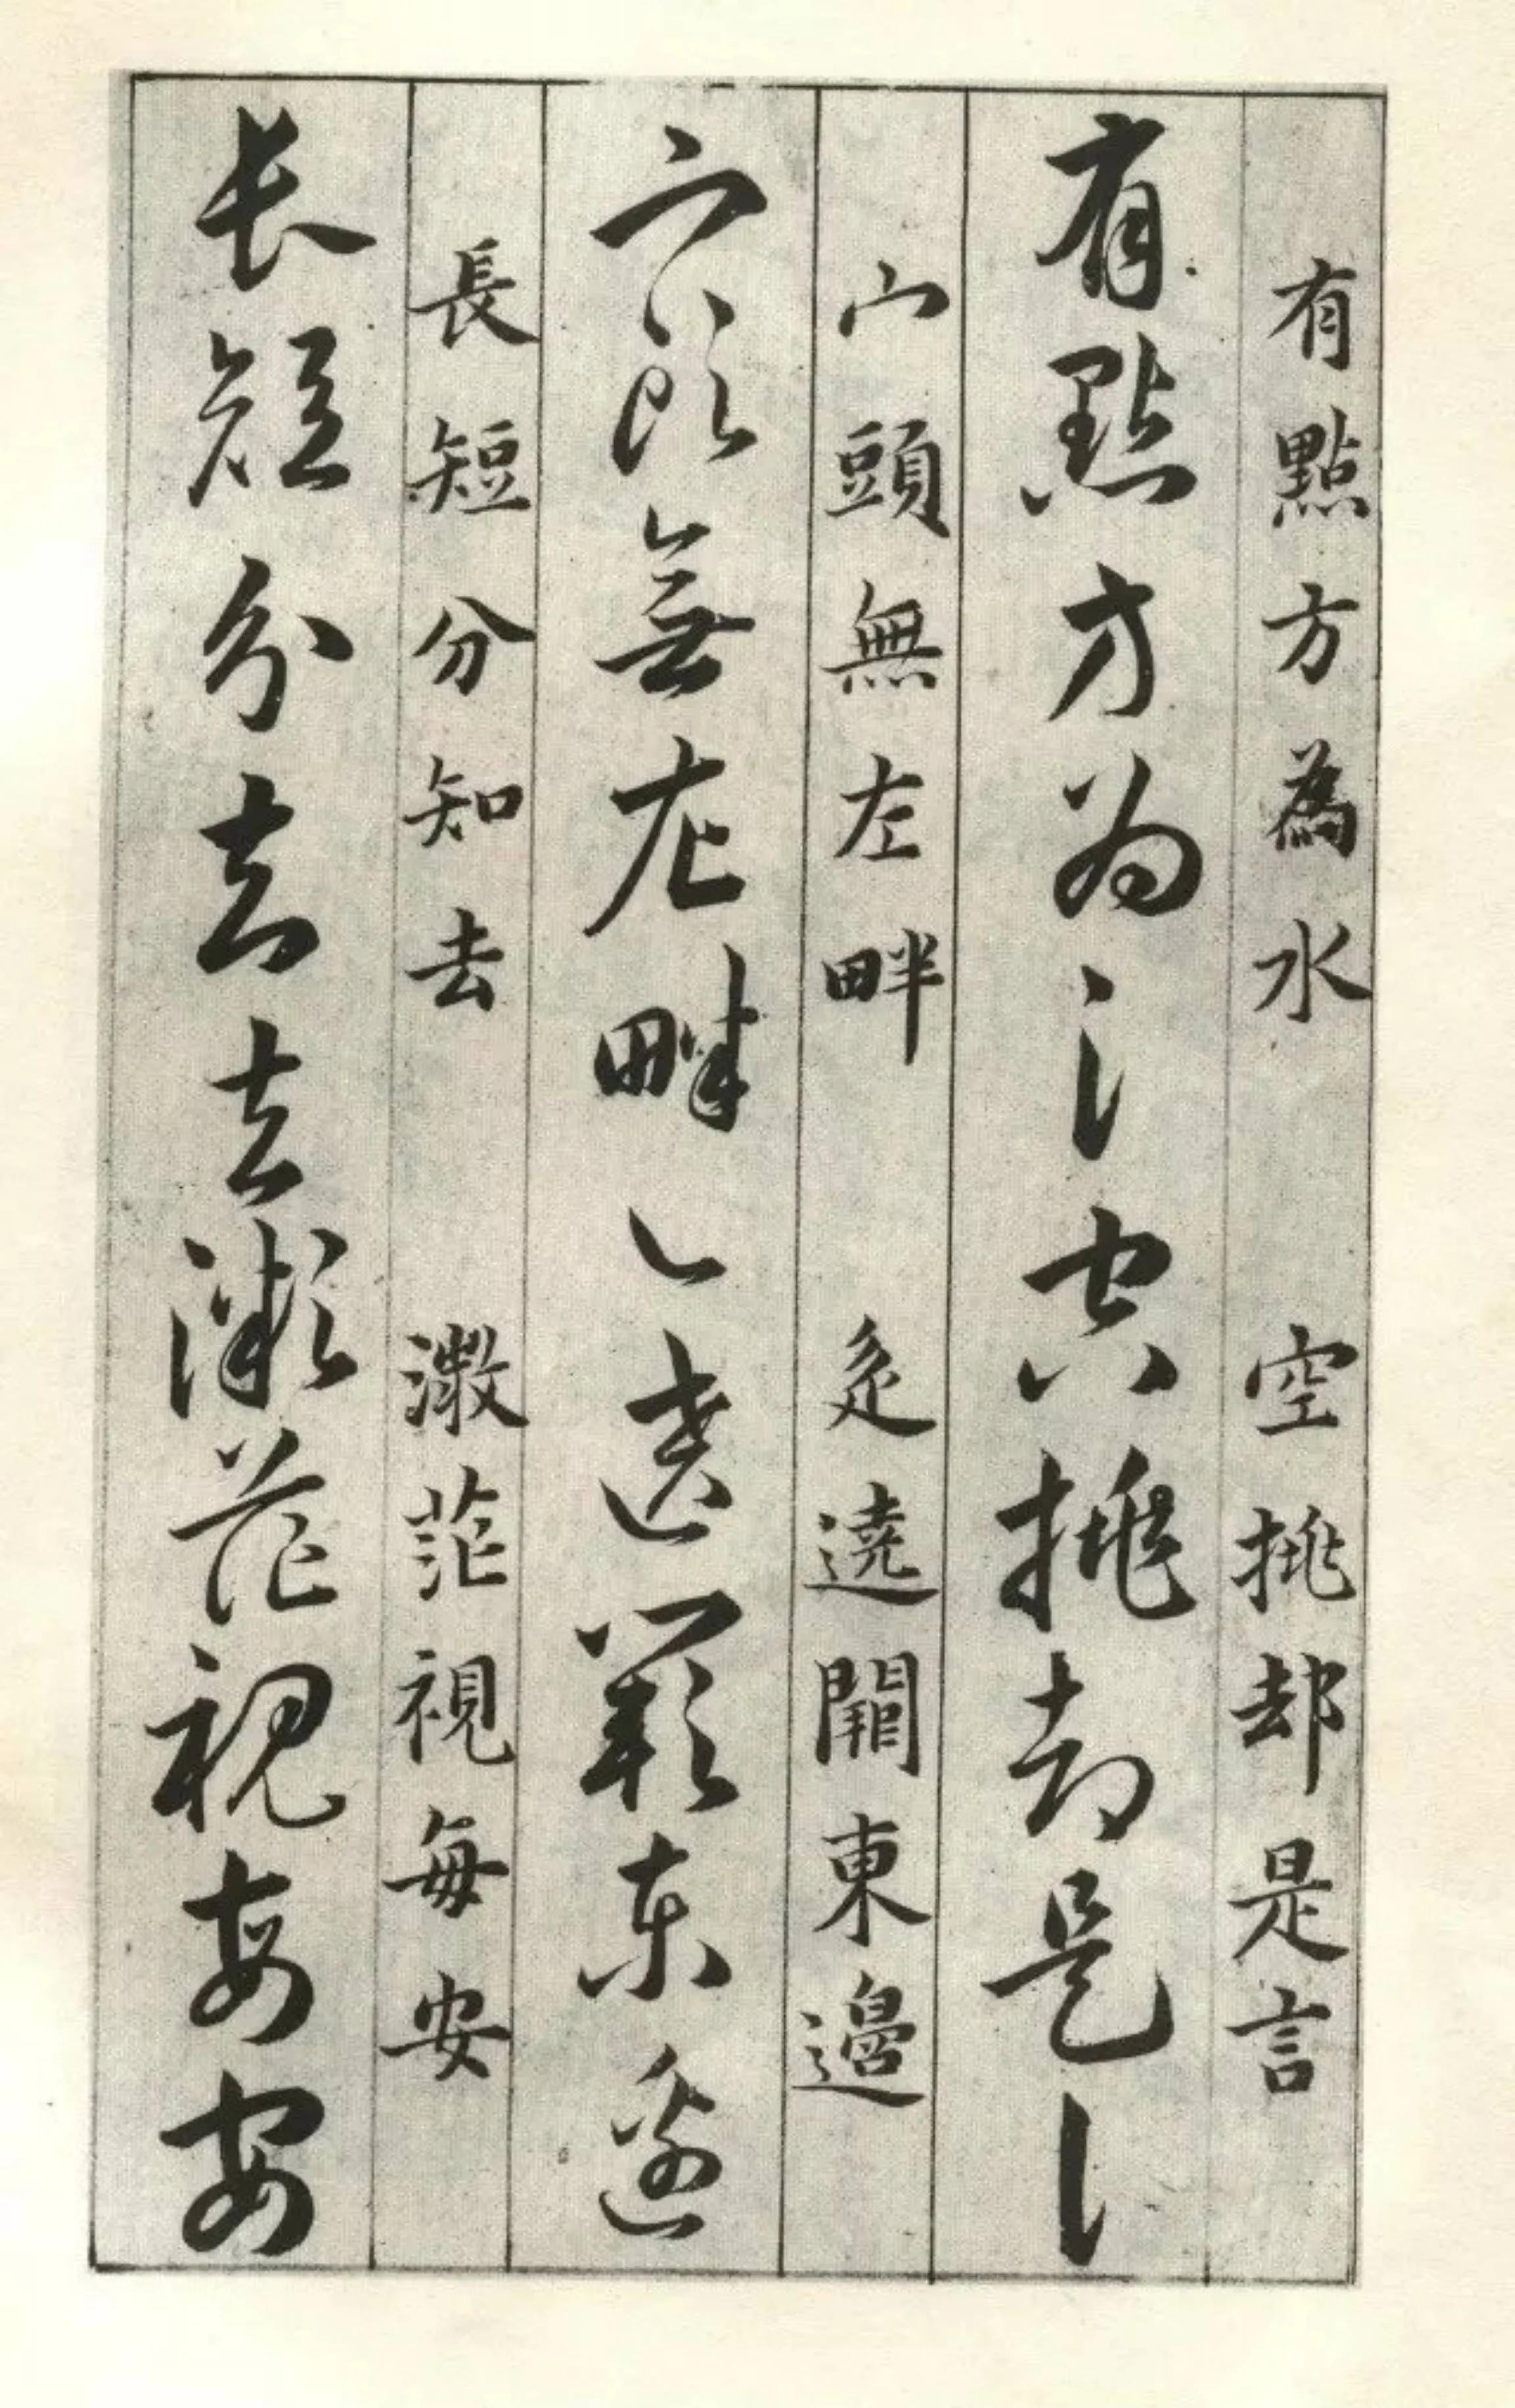 有點方為水　空挑却是言
有點方為氵空挑却是讠
宀頭無左畔　辵遶闕東邊
宀頭無左畔辶遶闕東邊
長短分知去　溦茫視每安
長短分知去溦茫視每安